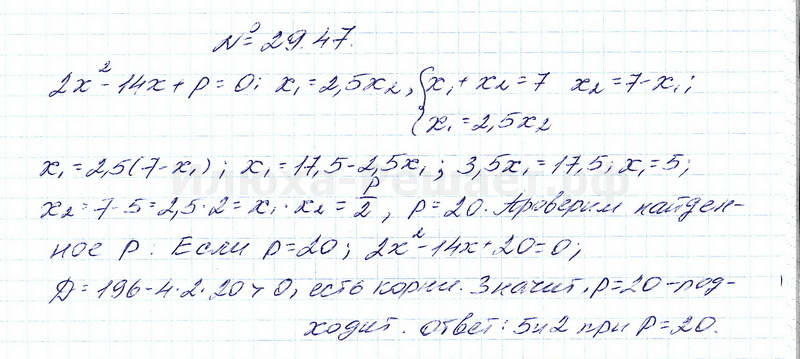 № 29.47.
2x² - 14x + p = 0; x₁ = 2,5x₂, { x₁ + x₂ = 7 x₂ = 7 - x₁;
x₁ = 2,5x₂
x₁ = 2,5(7 - x₁); x₁ = 17,5 - 2,5x₁; 3,5x₁ = 17,5; x₁ = 5;
x₂ = 7 - 5 = 2, 5·2 = x₁·x₂ = p/2, p = 20. Проверим найден-
ное p: Если p = 20; 2x² - 14x + 20 = 0;
D = 196 - 4·2·20 > 0, есть корни. Значит, p = 20 - под-
ходит. Ответ: 5 и 2 при p = 20.
илюха-решает.рф